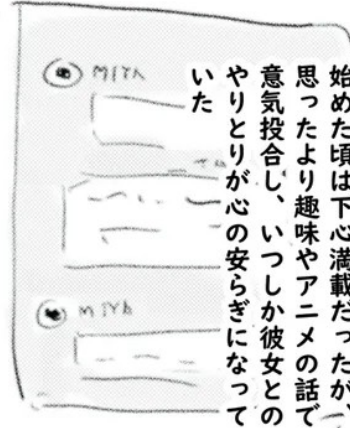 始めた頃は下心満載だったが、
思ったより趣味やアニメの話で
意気投合し、いつしか彼女との
やりとりが心の安らぎになって
いた
MIYA
MIYA